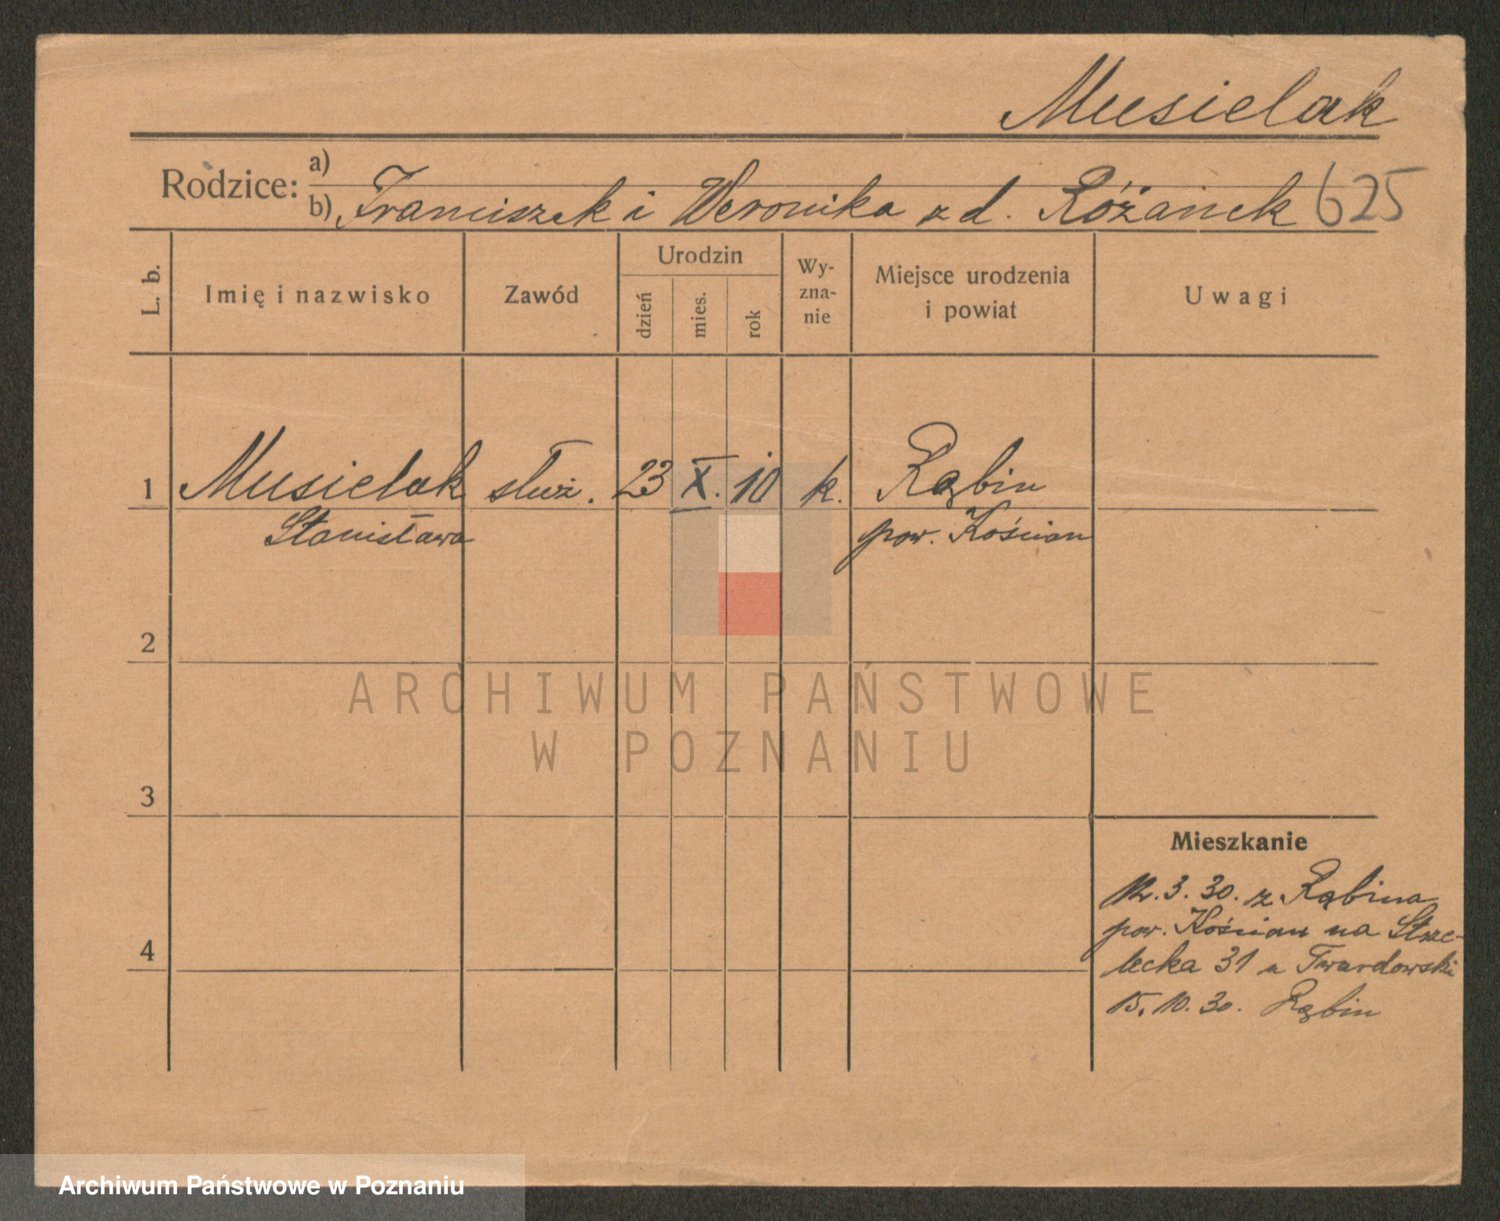 Musielak
Rodzice: a)
b) Franciszek i Weronika z d. Różanek 625
L. b.
Imię i nazwisko
Zawód
Urodzin
dzień
mies.
rok
Wy-
zna-
nie
Miejsce urodzenia
i powiat
Uwagi
1 Musielak służ. 23 X. 10 k. Rąbin
Stanisława pow. Kościan
2
ARCHIWUM PAŃSTWOWE
W POZNANIU
3
Mieszkanie
12.3.30. z Rąbina
pow. Kościan na Strze-
lecka 31 u Twardowski
4
15.10.30. Rąbin
Archiwum Państwowe w Poznaniu